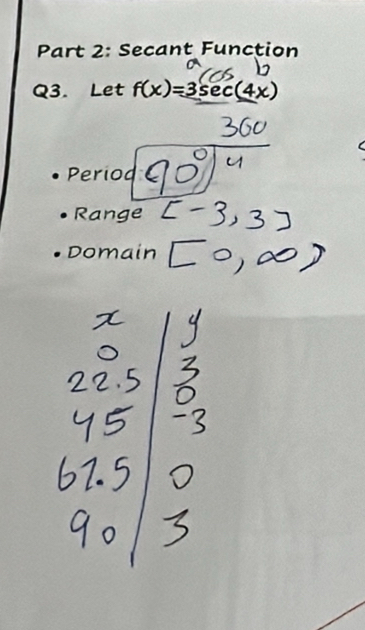 Part 2: Secant Function
a cos b
Q3. Let f(x)=3sec(4x)
360
• Period 90° 4
• Range [-3,3]
• Domain [0,∞)
x y
0 3
22.5 0
45 -3
67.5 0
90 3